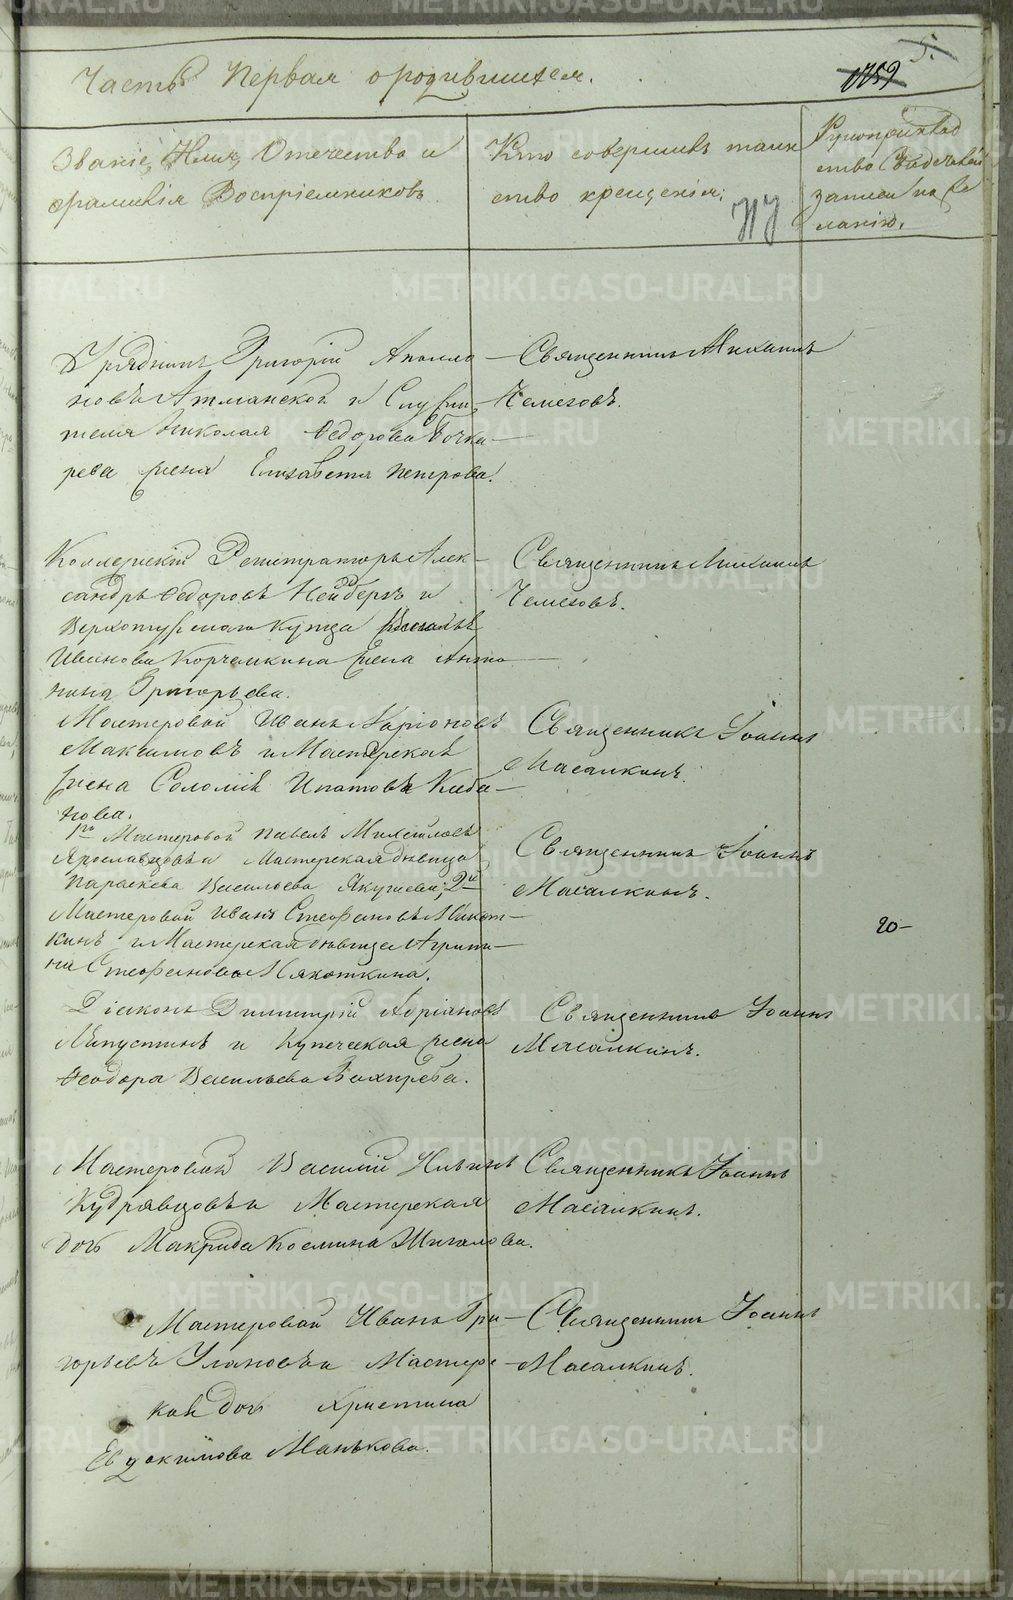 Часть Первая о родившихся.
Званіе, Имя, Отечество и
фамилія Воспріемниковъ.
Кто совершилъ таин
ство крещенія:
Рукоприклад
ство
записи по же
ланію.
Урядникъ Григорій Аполло
новъ Атманской и Служи
теля Николая Ѳедорова Бочка
рева жена Елизавета Петрова.
Священникъ Михаилъ
Чемезовъ.
Коллежскій Регистраторъ Алек
сандръ Ѳедоровъ Нейбергъ и
Верхотурскаго купца
Иванова Корчемкина жена Анто
нина Григорьева.
Священникъ Михаилъ
Чемезовъ.
Мастеровой Иванъ Ларіоновъ
Максимовъ и Мастерская
жена Соломія Ипатова Каба
кова.
Священникъ Іоаннъ
Масалкинъ.
1го Мастеровой Павелъ Михайловъ
Ярославцовъ и Мастерская дѣвица
Параскева Васильева Якушева; 2й
Мастеровой Иванъ Стефановъ Някот
кинъ и Мастерская дѣвица Агрипи
на Стефанова Някоткина.
Священникъ Іоаннъ
Масалкинъ.
20-
Діаконъ Димитрій Адріановъ
Липустинъ и Купеческая жена
Ѳеодора Васильева Бахирева.
Священникъ Іоаннъ
Масалкинъ.
Мастеровой Василій Ильинъ
Кудрявцовъ и Мастерская
дочь Макрида Космина Шигалова.
Священникъ Іоаннъ
Масалкинъ.
Мастеровой Иванъ Гри
горьевъ Улановъ и Мастерс
кая дочь Христина
Евдокимова Манькова.
Священникъ Іоаннъ
Масалкинъ.
METRIKI.GASO-URAL.RU